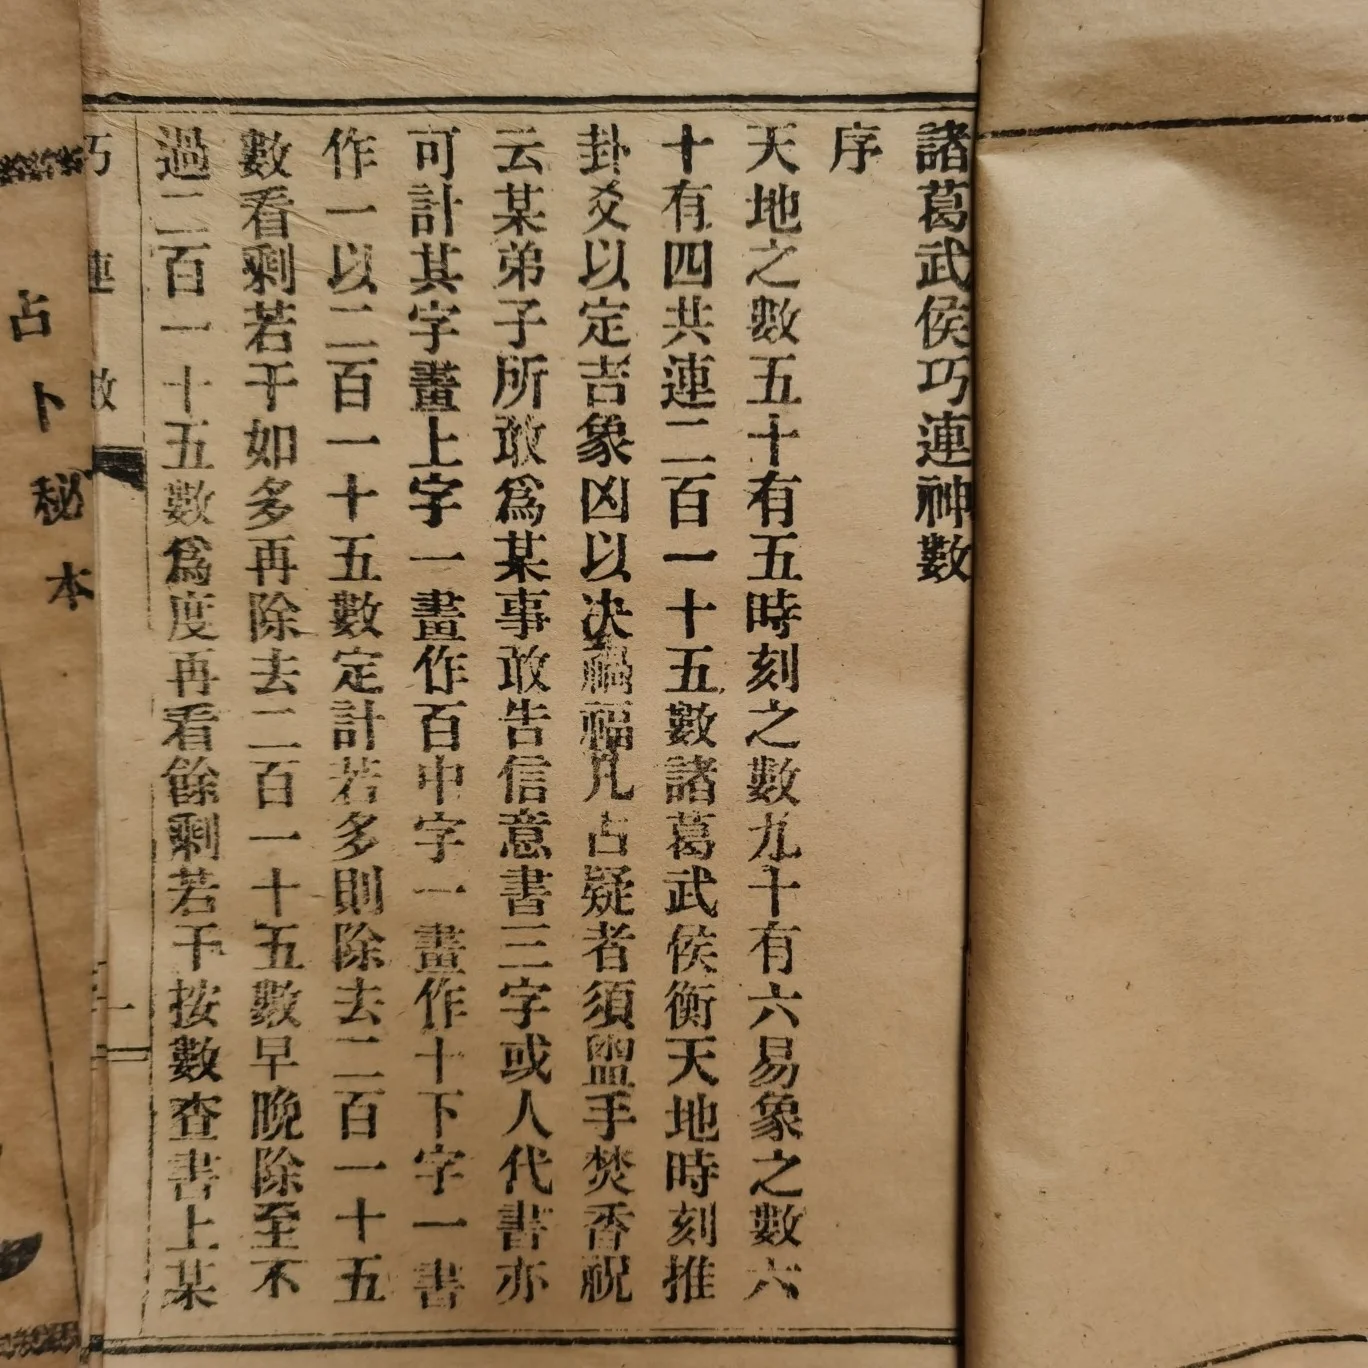 諸葛武侯巧連神數
序
天地之數五十有五時刻之數九十有六易象之數六
十有四共連二百一十五數諸葛武侯衡天地時刻推
卦爻以定吉象凶以决禍福凡占疑者須盥手焚香祝
云某弟子所敢爲某事敢告信意書三字或人代書亦
可計其字畫上字一畫作百中字一畫作十下字一書
作一以二百一十五數定計若多則除去二百一十五
數看剩若干如多再除去二百一十五數早晚除至不
過二百一十五數爲度再看餘剩若干按數查書上某
巧連數
一
占卜秘本